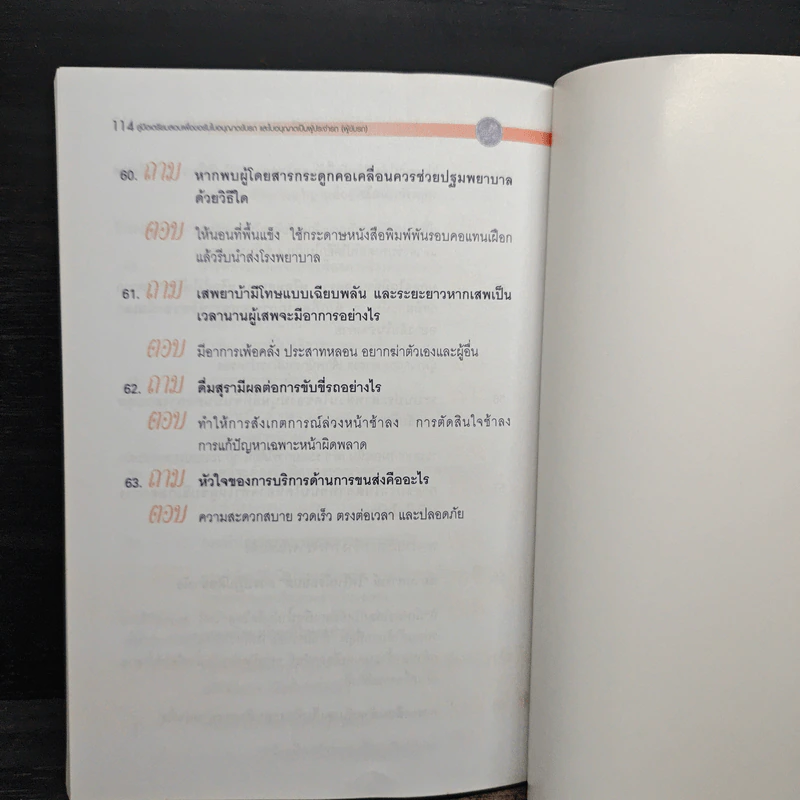 114 คู่มือเตรียมสอบเพื่อขอรับใบอนุญาตขับรถ และใบอนุญาตเป็นผู้ประจำรถ (ผู้ขับรถ)
60. ถาม หากพบผู้โดยสารกระดูกคอเคลื่อนควรช่วยปฐมพยาบาล
ด้วยวิธีใด
ตอบ ให้นอนที่พื้นแข็ง ใช้กระดาษหนังสือพิมพ์พันรอบคอแทนเฝือก
แล้วรีบนำส่งโรงพยาบาล
61. ถาม เสพยาบ้ามีโทษแบบเฉียบพลัน และระยะยาวหากเสพเป็น
เวลานานผู้เสพจะมีอาการอย่างไร
ตอบ มีอาการเพ้อคลั่ง ประสาทหลอน อยากฆ่าตัวเองและผู้อื่น
62. ถาม ดื่มสุรามีผลต่อการขับขี่รถอย่างไร
ตอบ ทำให้การสังเกตการณ์ล่วงหน้าช้าลง การตัดสินใจช้าลง
การแก้ปัญหาเฉพาะหน้าผิดพลาด
63. ถาม หัวใจของการบริการด้านการขนส่งคืออะไร
ตอบ ความสะดวกสบาย รวดเร็ว ตรงต่อเวลา และปลอดภัย